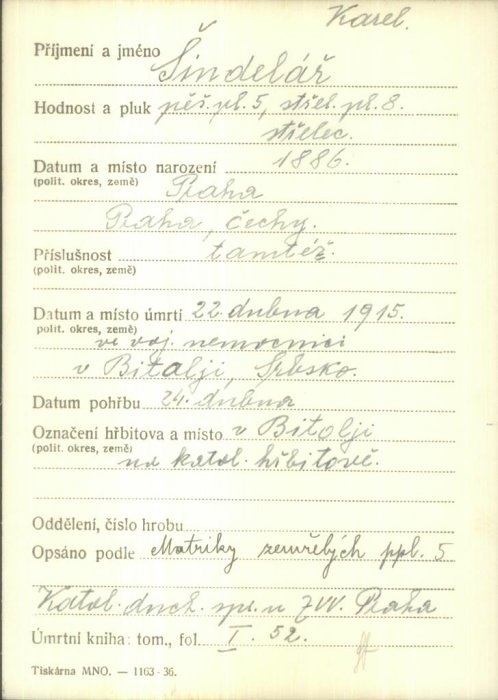 Karel.
Příjmení a jméno Šindelář
Hodnost a pluk pěš. pl. 5, střel. pl. 8.
střelec.
Datum a místo narození 1886.
(polit. okres, země) Praha
Praha, Čechy.
Příslušnost tamtéž.
(polit. okres, země)
Datum a místo úmrtí 22. dubna 1915.
polit. okres, země) ve voj. nemocnici
v Bitolji, Srbsko.
Datum pohřbu 24. dubna
Označení hřbitova a místo v Bitolji
(polit. okres, země) na katol. hřbitově.
Oddělení, číslo hrobu
Opsáno podle Matriky zemřelých ppl. 5
Katol. duch. spr. u ZVV. Praha
Úmrtní kniha: tom., fol. I. 52.
Tiskárna MNO. — 1163-36.